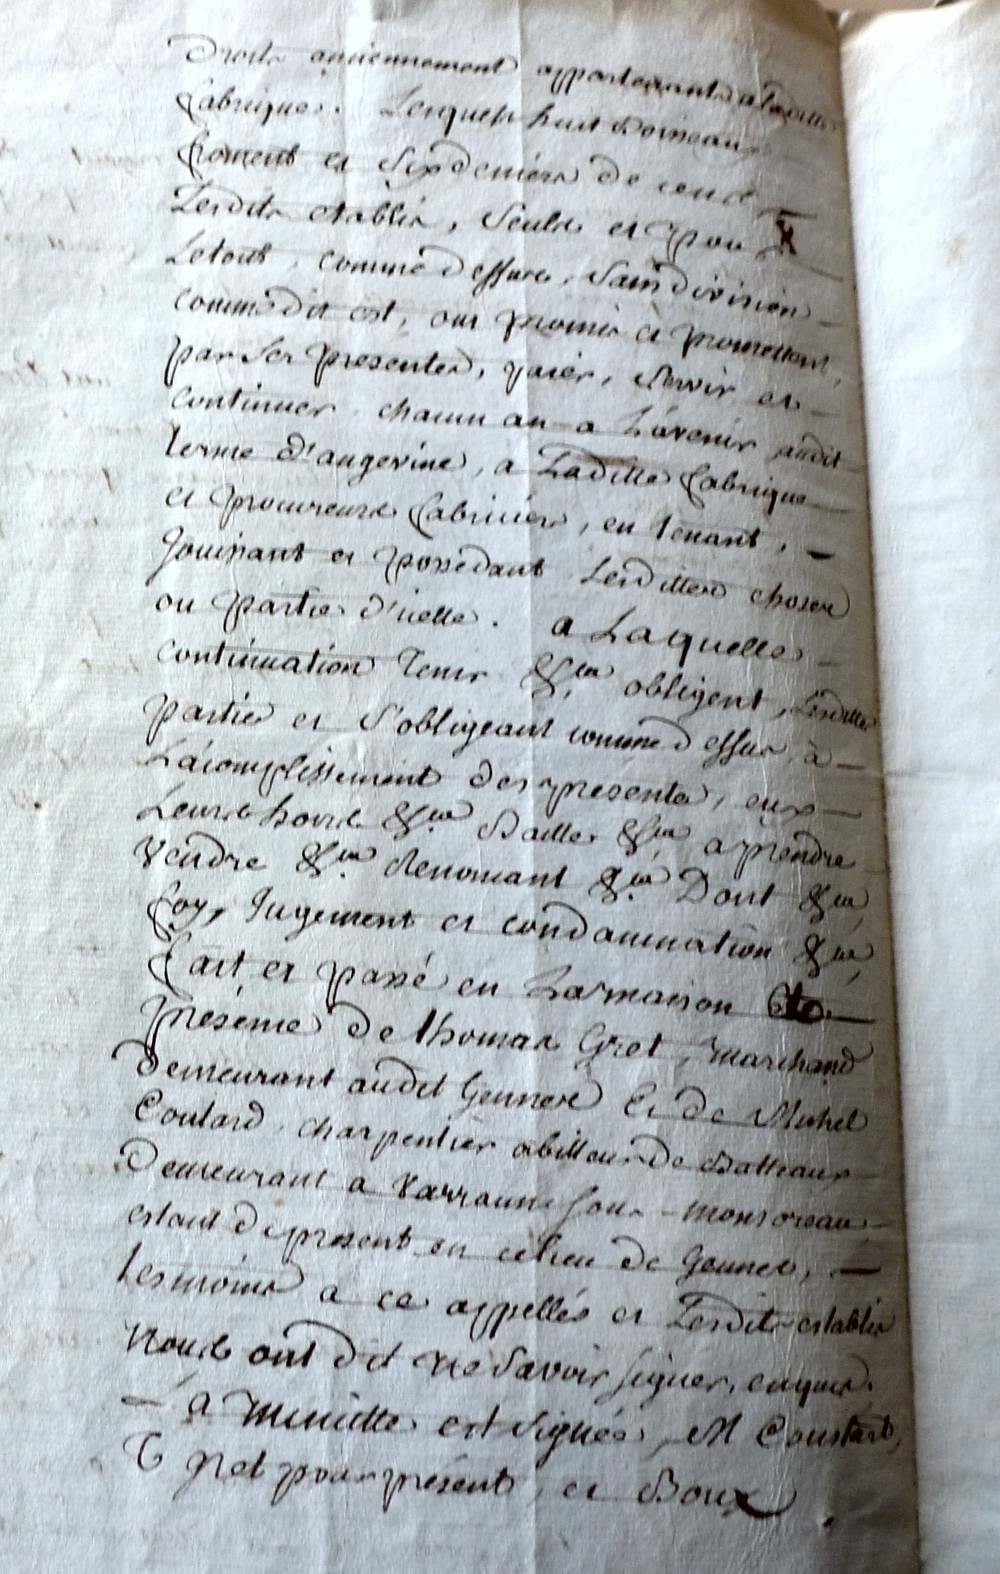 droits anciennement appartenants a Laditte
fabrique. Lesquels huit Boisseaux
froment et six deniers de cens
Lesdits etablis, seuls et pour
Letout, comme dessus, sans division
comme dit est, ont promis et promettent,
par ses presentes, paier, servir et
continuer chacun an a L'avenir audit
terme d'angevine, a Laditte fabrique
et procureurs fabriciers, en tenant,
Jouissant et possedant Lesdittes choses
ou partie d'icelle. a Laquelle
continuation tenir &ca obligent, Lesdittes
parties et s'obligeant comme dessus, à
L'acomplissement des presentes, eux
Leurs hoirs &ca Baille &ca a prendre
vendre &ca Renoncant &ca Dont &ca
foy, Jugement et condamnation &ca
fait et passé en La maison
présence de thomas Gret, marchand
demeurant audit Gennes Et de Michel
Coutard charpentier abilleur de Batteaux
demeurant a Varranne sous monsoreau
estant de present en ce lieu de Gennes,
tesmoins a ce appellés et Lesdits establis
nous ont dit ne savoir signer, enquis.
La minutte est signée, M Coustard,
T gret pour présent, et Boux